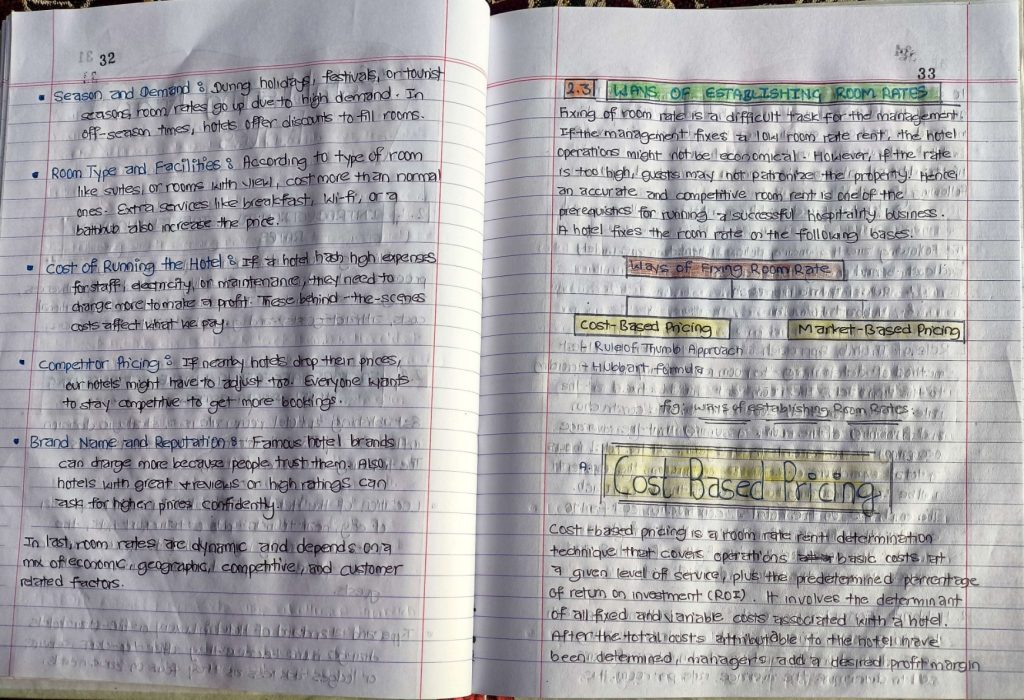 32
• Season and Demand : During holidays, festivals, or tourist
seasons, room rates go up due to high demand. In
off-season times, hotels offer discounts to fill rooms.
• Room Type and Facilities : According to type of room
like suites, or rooms with view, cost more than normal
ones. Extra services like breakfast, Wi-fi, or a
bathtub also increase the price.
• Cost of Running the Hotel : If a hotel hash high expenses
for staff, electricity, or maintenance, they need to
charge more to make a profit. These behind-the-scenes
costs affect what we pay.
• Competitor Pricing : If nearby hotels drop their prices,
our hotels' might have to adjust too. Everyone wants
to stay competitive to get more bookings.
• Brand Name and Reputation : Famous hotel brands
can charge more because people trust them. Also,
hotels with great reviews or high ratings can
ask for higher prices confidently.
In last, room rates are dynamic and depends on a
mix of economic, geographic, competitive, and customer
related factors.
33
2.3 WAYS OF ESTABLISHING ROOM RATES
Fixing of room rate is a difficult task for the management.
If the management fixes a low room rate rent, the hotel
operations might not be economical. However, if the rate
is too high, guests may not patronize the property. Hence,
an accurate and competitive room rent is one of the
prerequistis for running a successful hospitality business.
A hotel fixes the room rate on the following bases:
Ways of Fixing Room Rate
Cost-Based Pricing Market-Based Pricing
+ Rule of Thumb Approach
+ Hubbart Formula
fig: Ways of establishing Room Rates.
A. Cost Based Pricing
Cost-based pricing is a room rate rent determination
technique that covers operations basic costs at
a given level of service, plus the predetermined percentage
of return on investment (ROI). It involves the determinant
of all fixed and variable costs associated with a hotel.
After the total costs attributable to the hotel have
been determined, managers add a desired profit margin